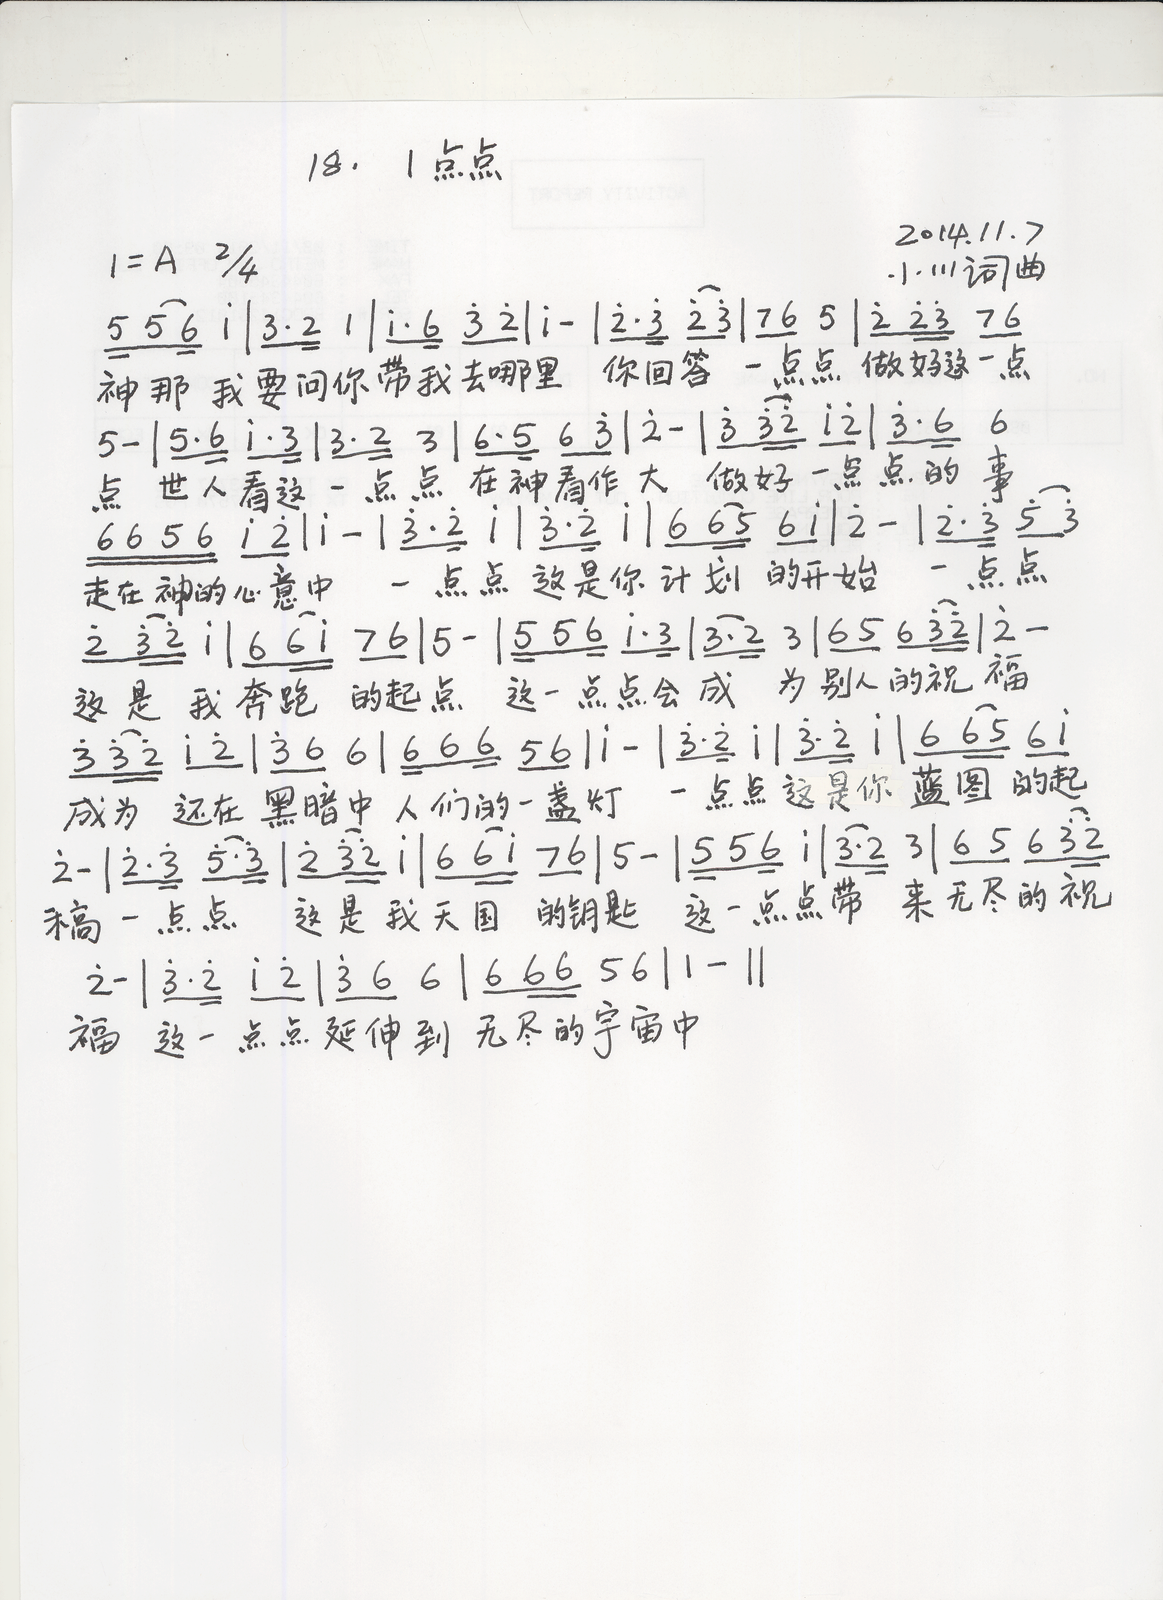 18. 1点点
2014.11.7
1=A 2/4
小川词曲
5 5 6 i|3·2 1|i·6 3̇ 2̇|i-|2̇·3̇ 2̇ 3̇|7 6 5|2̇ 2̇ 3̇ 7 6
神那 我要问你带我去哪里 你回答 一点点 做好这一点
5-|5·6 i·3|3·2 3|6·5 6 3̇|2̇-|3̇ 3̇ 2̇ i 2̇|3̇·6 6
点 世人看这一点点 在神看作大 做好一点点的 事
6 6 5 6 i 2̇|i-|3̇·2̇ i|3̇·2̇ i|6 6 5 6 i|2̇-|2̇·3̇ 5̇ 3̇
走在神的心意中 一点点 这是你计划 的开始 一点点
2̇ 3̇ 2̇ i|6 6 i 7 6|5-|5 5 6 i·3|3·2 3|6 5 6 3̇ 2̇|2̇-
这是 我奔跑 的起点 这一点点会成 为别人的祝福
3̇ 3̇ 2̇ i 2̇|3̇ 6 6|6 6 6 5 6|i-|3̇·2̇ i|3̇·2̇ i|6 6 5 6 i
成为 还在黑暗中 人们的一盏灯 一点点这是你 蓝图的起
2̇-|2̇·3̇ 5̇·3̇|2̇ 3̇ 2̇ i|6 6 i 7 6|5-|5 5 6 i|3·2 3|6 5 6 3̇ 2̇
稿 一点点 这是我天国 的钥匙 这一点点带 来无尽的祝
2̇-|3̇·2̇ i 2̇|3̇ 6 6|6 6 6 5 6|1-||
福 这一点点延伸到 无尽的宇宙中